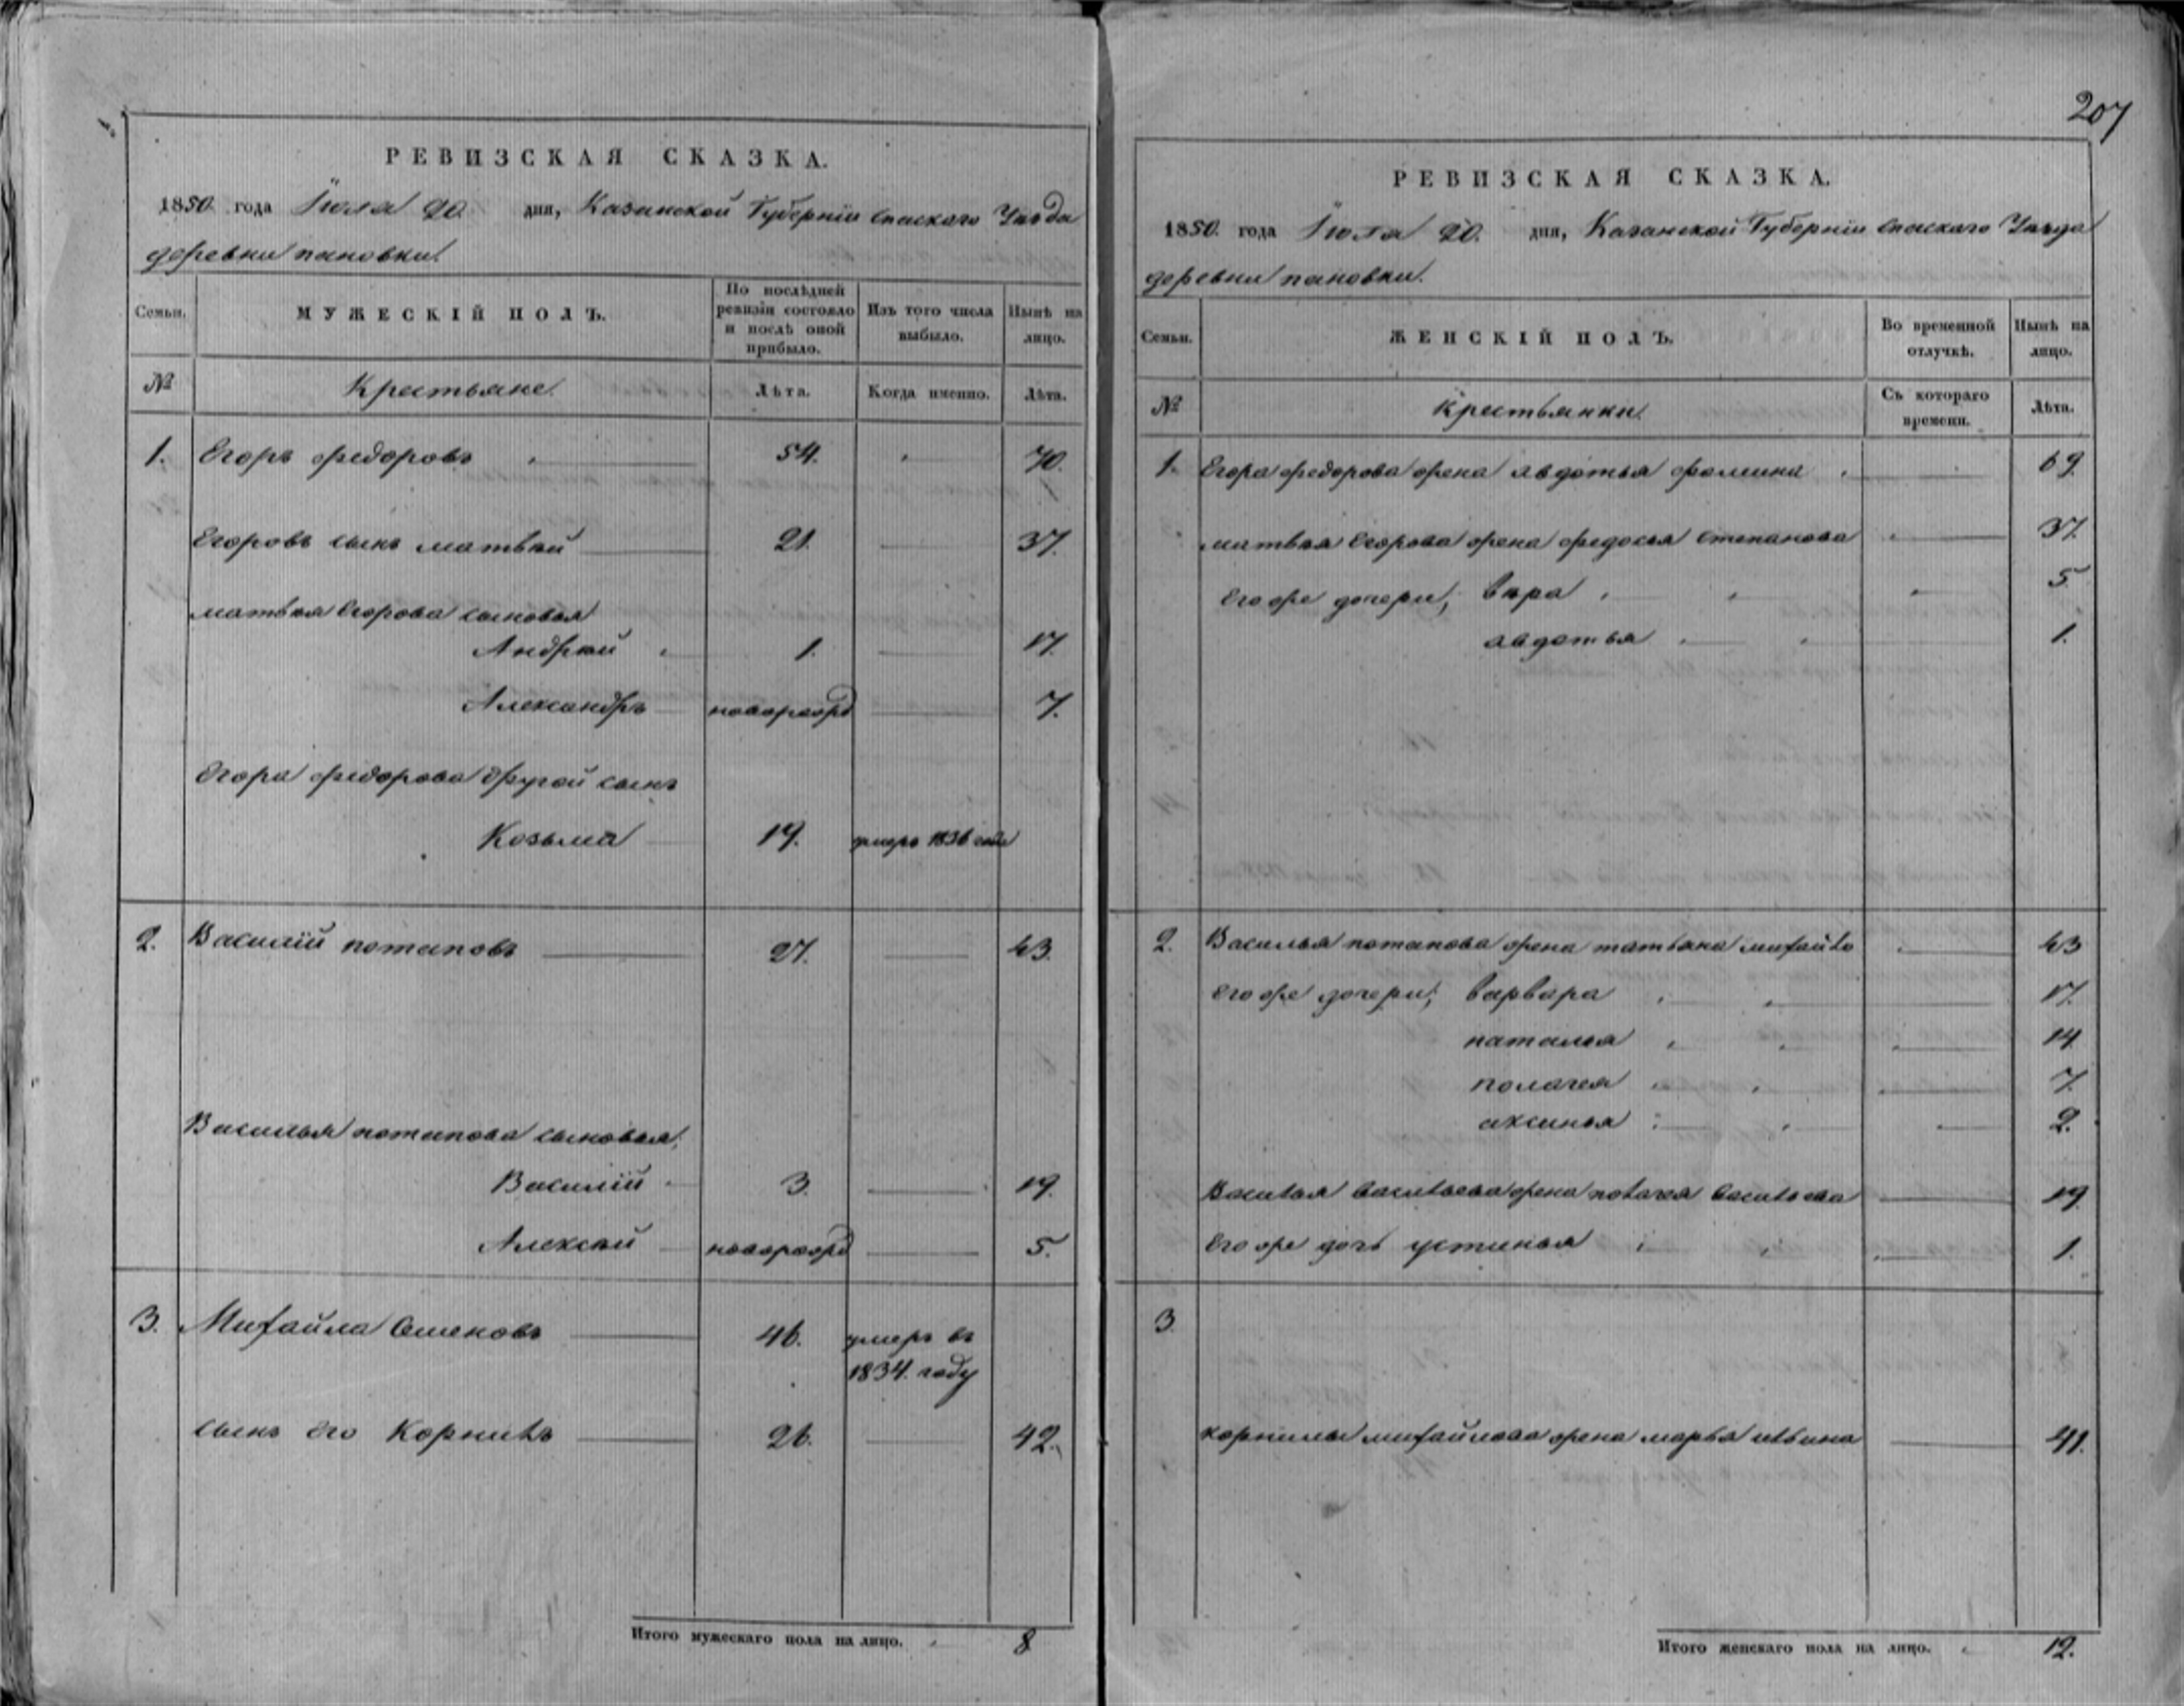 207
РЕВИЗСКАЯ СКАЗКА.
1850. года Іюля 20. дня, Казанской Губерніи Спаскаго Уѣзда
деревни пановки.
Семьи. МУЖЕСКІЙ ПОЛЪ. По послѣдней ревизіи состояло и послѣ оной прибыло. Изъ того числа выбыло. Нынѣ на лицо.
№ Крестьяне. Лѣта. Когда именно. Лѣта.
1. Егоръ федоровъ 54. 70.
Егоровъ сынъ матвѣй 21. 37.
матвѣя Егорова сыновья
Андрѣй 1. 17.
Александръ новорожд 7.
Егора федорова другой сынъ
Козьма 19. умеръ 1836 года
2. Василій потаповъ 27. 43.
Василья потапова сыновья;
Василій 3. 19.
Алексѣй новорожд 5.
3. Михайла Семеновъ 46. умеръ въ
1834. году
сынъ его Корнилъ 26. 42.
Итого мужескаго пола на лицо. 8
РЕВИЗСКАЯ СКАЗКА.
1850. года Іюля 20. дня, Казанской Губерніи Спаскаго Уѣзда
деревни пановки.
Семьи. ЖЕНСКІЙ ПОЛЪ. Во временной отлучкѣ. Нынѣ на лицо.
№ Крестьянки. Съ котораго времени. Лѣта.
1. Егора федорова жена авдотья фомина 69.
матвѣя Егорова жена федосья степанова 37.
Его же дочери, вѣра 5
авдотья 1.
2. Василья потапова жена татьяна михайло 43
Его же дочери; варвара 17.
наталья 14
полагея 7.
аксинья 2.
Василья васильева жена полагея васильева 19
Его же дочь устинья 1.
3.
корнилы михайлова жена марья ильина 41.
Итого женскаго пола на лицо. 12.